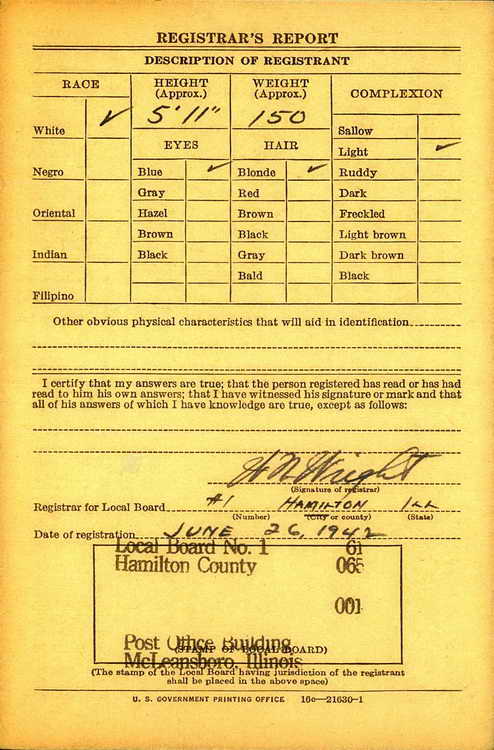 REGISTRAR'S REPORT
DESCRIPTION OF REGISTRANT
RACE HEIGHT (Approx.) WEIGHT (Approx.) COMPLEXION
5'11" 150
White ✓ Sallow
EYES HAIR Light ✓
Negro Blue ✓ Blonde ✓ Ruddy
Gray Red Dark
Oriental Hazel Brown Freckled
Brown Black Light brown
Indian Black Gray Dark brown
Bald Black
Filipino
Other obvious physical characteristics that will aid in identification
I certify that my answers are true; that the person registered has read or has had
read to him his own answers; that I have witnessed his signature or mark and that
all of his answers of which I have knowledge are true, except as follows:
H N Wright
(Signature of registrar)
Registrar for Local Board #1 HAMILTON Ill
(Number) (City or county) (State)
Date of registration JUNE 26, 1942
Local Board No. 1 61
Hamilton County 065
001
Post Office Building
(STAMP OF LOCAL BOARD)
McLeansboro, Illinois
(The stamp of the Local Board having jurisdiction of the registrant
shall be placed in the above space)
U. S. GOVERNMENT PRINTING OFFICE 16c—21630-1